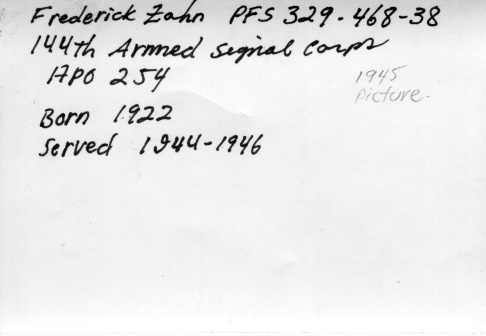 Frederick Zahn PFS 329-468-38
144th Armed Signal Corps
APO 254
1945
Picture.
Born 1922
Served 1944-1946